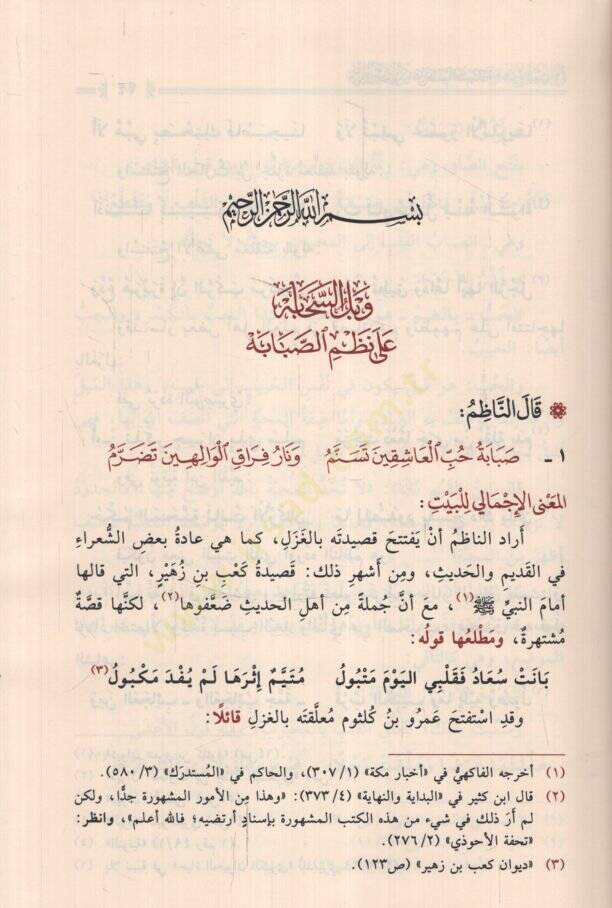 بِسْمِ اللَّهِ الرَّحْمَنِ الرَّحِيمِ
وَبْلُ السَّحَابَه
عَلَى نَظْمِ الصَّبَابَه
قَالَ النَّاظِمُ:
١ - صَبَابَةُ حُبِّ الْعَاشِقِينَ تَسَنَّمُ وَنَارُ فِرَاقِ الْوَالِهِينَ تَضَرَّمُ
المَعْنَى الإِجْمَالِي لِلْبَيْتِ:
أَراد الناظمُ أنْ يَفتتحَ قصيدتَه بالغَزَلِ، كما هي عادةُ بعضِ الشُّعراءِ
في القديمِ والحَديثِ، ومِن أَشهرِ ذلك: قصيدةُ كَعْبِ بنِ زُهَيْرٍ، التي قالها
أمامَ النبيِّ ﷺ(١)، مع أنَّ جُملةً مِن أهلِ الحديثِ ضَعَّفوها(٢)، لكنَّها قصَّةٌ
مُشتهرةٌ، ومَطْلَعُها قولُه:
بَانَتْ سُعَادُ فَقَلْبِي اليَوْمَ مَتْبُولُ مُتَيَّمٌ إِثْرَهَا لَمْ يُفْدَ مَكْبُولُ(٣)
وقدِ اسْتفتحَ عَمرُو بنُ كُلثوم مُعلَّقتَه بالغزلِ قائلًا:
(١) أخرجه الفاكهيُّ في «أخبار مكة» (٣٠٧/١)، والحاكم في «المُستدرَك» (٥٨٠/٣).
(٢) قال ابن كثير في «البداية والنهاية» (٣٧٣/٤): «وهذا مِن الأمور المشهورة جدًّا، ولكن
لم أرَ ذلك في شيء من هذه الكتب المشهورة بإسنادٍ أرتضيه؛ فالله أعلم»، وانظر:
«تحفة الأحوذي» (٢٧٦/٢).
(٣) «ديوان كعب بن زهير» (ص١٢٣).